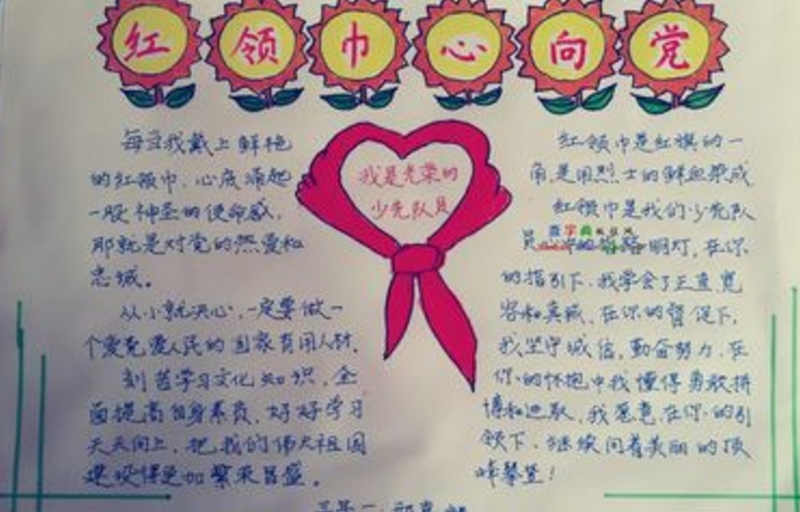 红领巾心向党
每当我戴上鲜艳
的红领巾，心底涌起
一股神圣的使命感，
那就是对党的热爱和
忠诚。
从小就决心，一定要做一
个爱党爱人民的国家有用人材，
刻苦学习文化知识，全
面提高自身素质，好好学习
天天向上，把我的伟大祖国
建设得更加繁荣昌盛。
我是光荣的
少先队员
红领巾是红旗的一
角，是用烈士的鲜血染成
红领巾是我们少先队
员 明灯，在你
的指引下，我学会了正直宽
容和真诚，在你的督促下，
我坚守诚信，勤奋努力，在
你的怀抱中我懂得勇敢拼
搏和进取，我愿意在你的引
领下，继续向着美丽的顶
峰攀登！
三年一